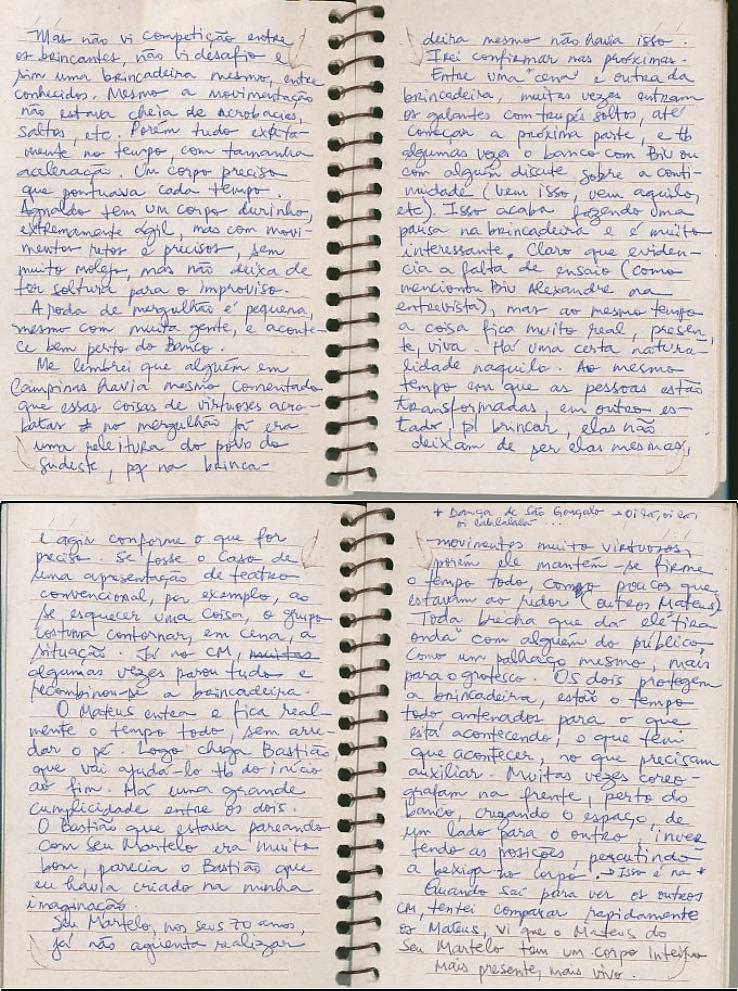 Mas não vi competição entre
os brincantes, não vi desafio e
sim uma brincadeira mesmo, entre
conhecidos. Mesmo a movimentação
não estava cheia de acrobacias,
saltos, etc. Porém tudo exata-
mente no tempo, com tamanha
aceleração. Um corpo preciso
que pontuava cada tempo.
Agnaldo tem um corpo durinho,
extremamente ágil, mas com movi-
mentos retos e precisos, sem
muito molejo, mas não deixa de
ter soltura para o improviso.
A roda de mergulhão é pequena,
mesmo com muita gente, e aconte-
ce bem perto do Banco.
Me lembrei que alguém em
Campinas havia mesmo comentado
que essas coisas de virtuoses acro-
batas no mergulhão já era
uma releitura do povo do
sudeste, pq na brinca-
deira mesmo não havia isso.
Irei confirmar nas próximas.
Entre uma "cena" e outra da
brincadeira, muitas vezes entram
os galantes com trupés soltos, até
começar a próxima parte, e tb
algumas vezes o banco com Biu ou
com alguém discute sobre a conti-
nuidade (vem isso, vem aquilo,
etc). Isso acaba fazendo uma
pausa na brincadeira e é muito
interessante. Claro que eviden-
cia a falta de ensaio (como
mencionou Biu Alexandre na
entrevista), mas ao mesmo tempo
a coisa fica muito real, presen-
te, viva. Há uma certa natura-
lidade naquilo. Ao mesmo
tempo em que as pessoas estão
transformadas, em outro es-
tado, p/ brincar, elas não
deixam de ser elas mesmas,
e agir conforme o que for
preciso. Se fosse o caso de
uma apresentação de teatro
convencional, por exemplo, ao
se esquecer uma coisa, o grupo
costuma contornar, em cena, a
situação. Já no CM, muitas
algumas vezes parou tudo e
recombinou-se a brincadeira.
O Mateus entra e fica real-
mente o tempo todo, sem arre-
dar o pé. Logo chega Bastião,
que vai ajudá-lo tb do início
ao fim. Há uma grande
cumplicidade entre os dois.
O Bastião que estava pareando
com Seu Martelo era muito
bom, parecia o Bastião que
eu havia criado na minha
imaginação.
Seu Martelo, nos seus 70 anos,
já não agüenta realizar
* Dança de São Gonçalo → oi lá, oi lá,
oi lalalalalá ...
movimentos muito virtuosos,
porém ele mantém-se firme
o tempo todo, como poucos que
estavam ao redor (outros Mateus)
Toda brecha que dá ele "tira
onda" com alguém do público,
como um palhaço mesmo, mais
para o grotesco. Os dois protegem
a brincadeira, estão o tempo
todo antenados para o que
está acontecendo, o que tem
que acontecer, no que precisam
auxiliar. Muitas vezes coreo-
grafam na frente, perto do
banco, cruzando o espaço, de
um lado para o outro, inver-
tendo as posições, percutindo
a bexiga no corpo. → Isso é na *
Quando saí para ver os outros
CM, tentei comparar rapidamente
os Mateus, vi que o Mateus do
Seu Martelo tem um corpo inteiro
mais presente, mais vivo.